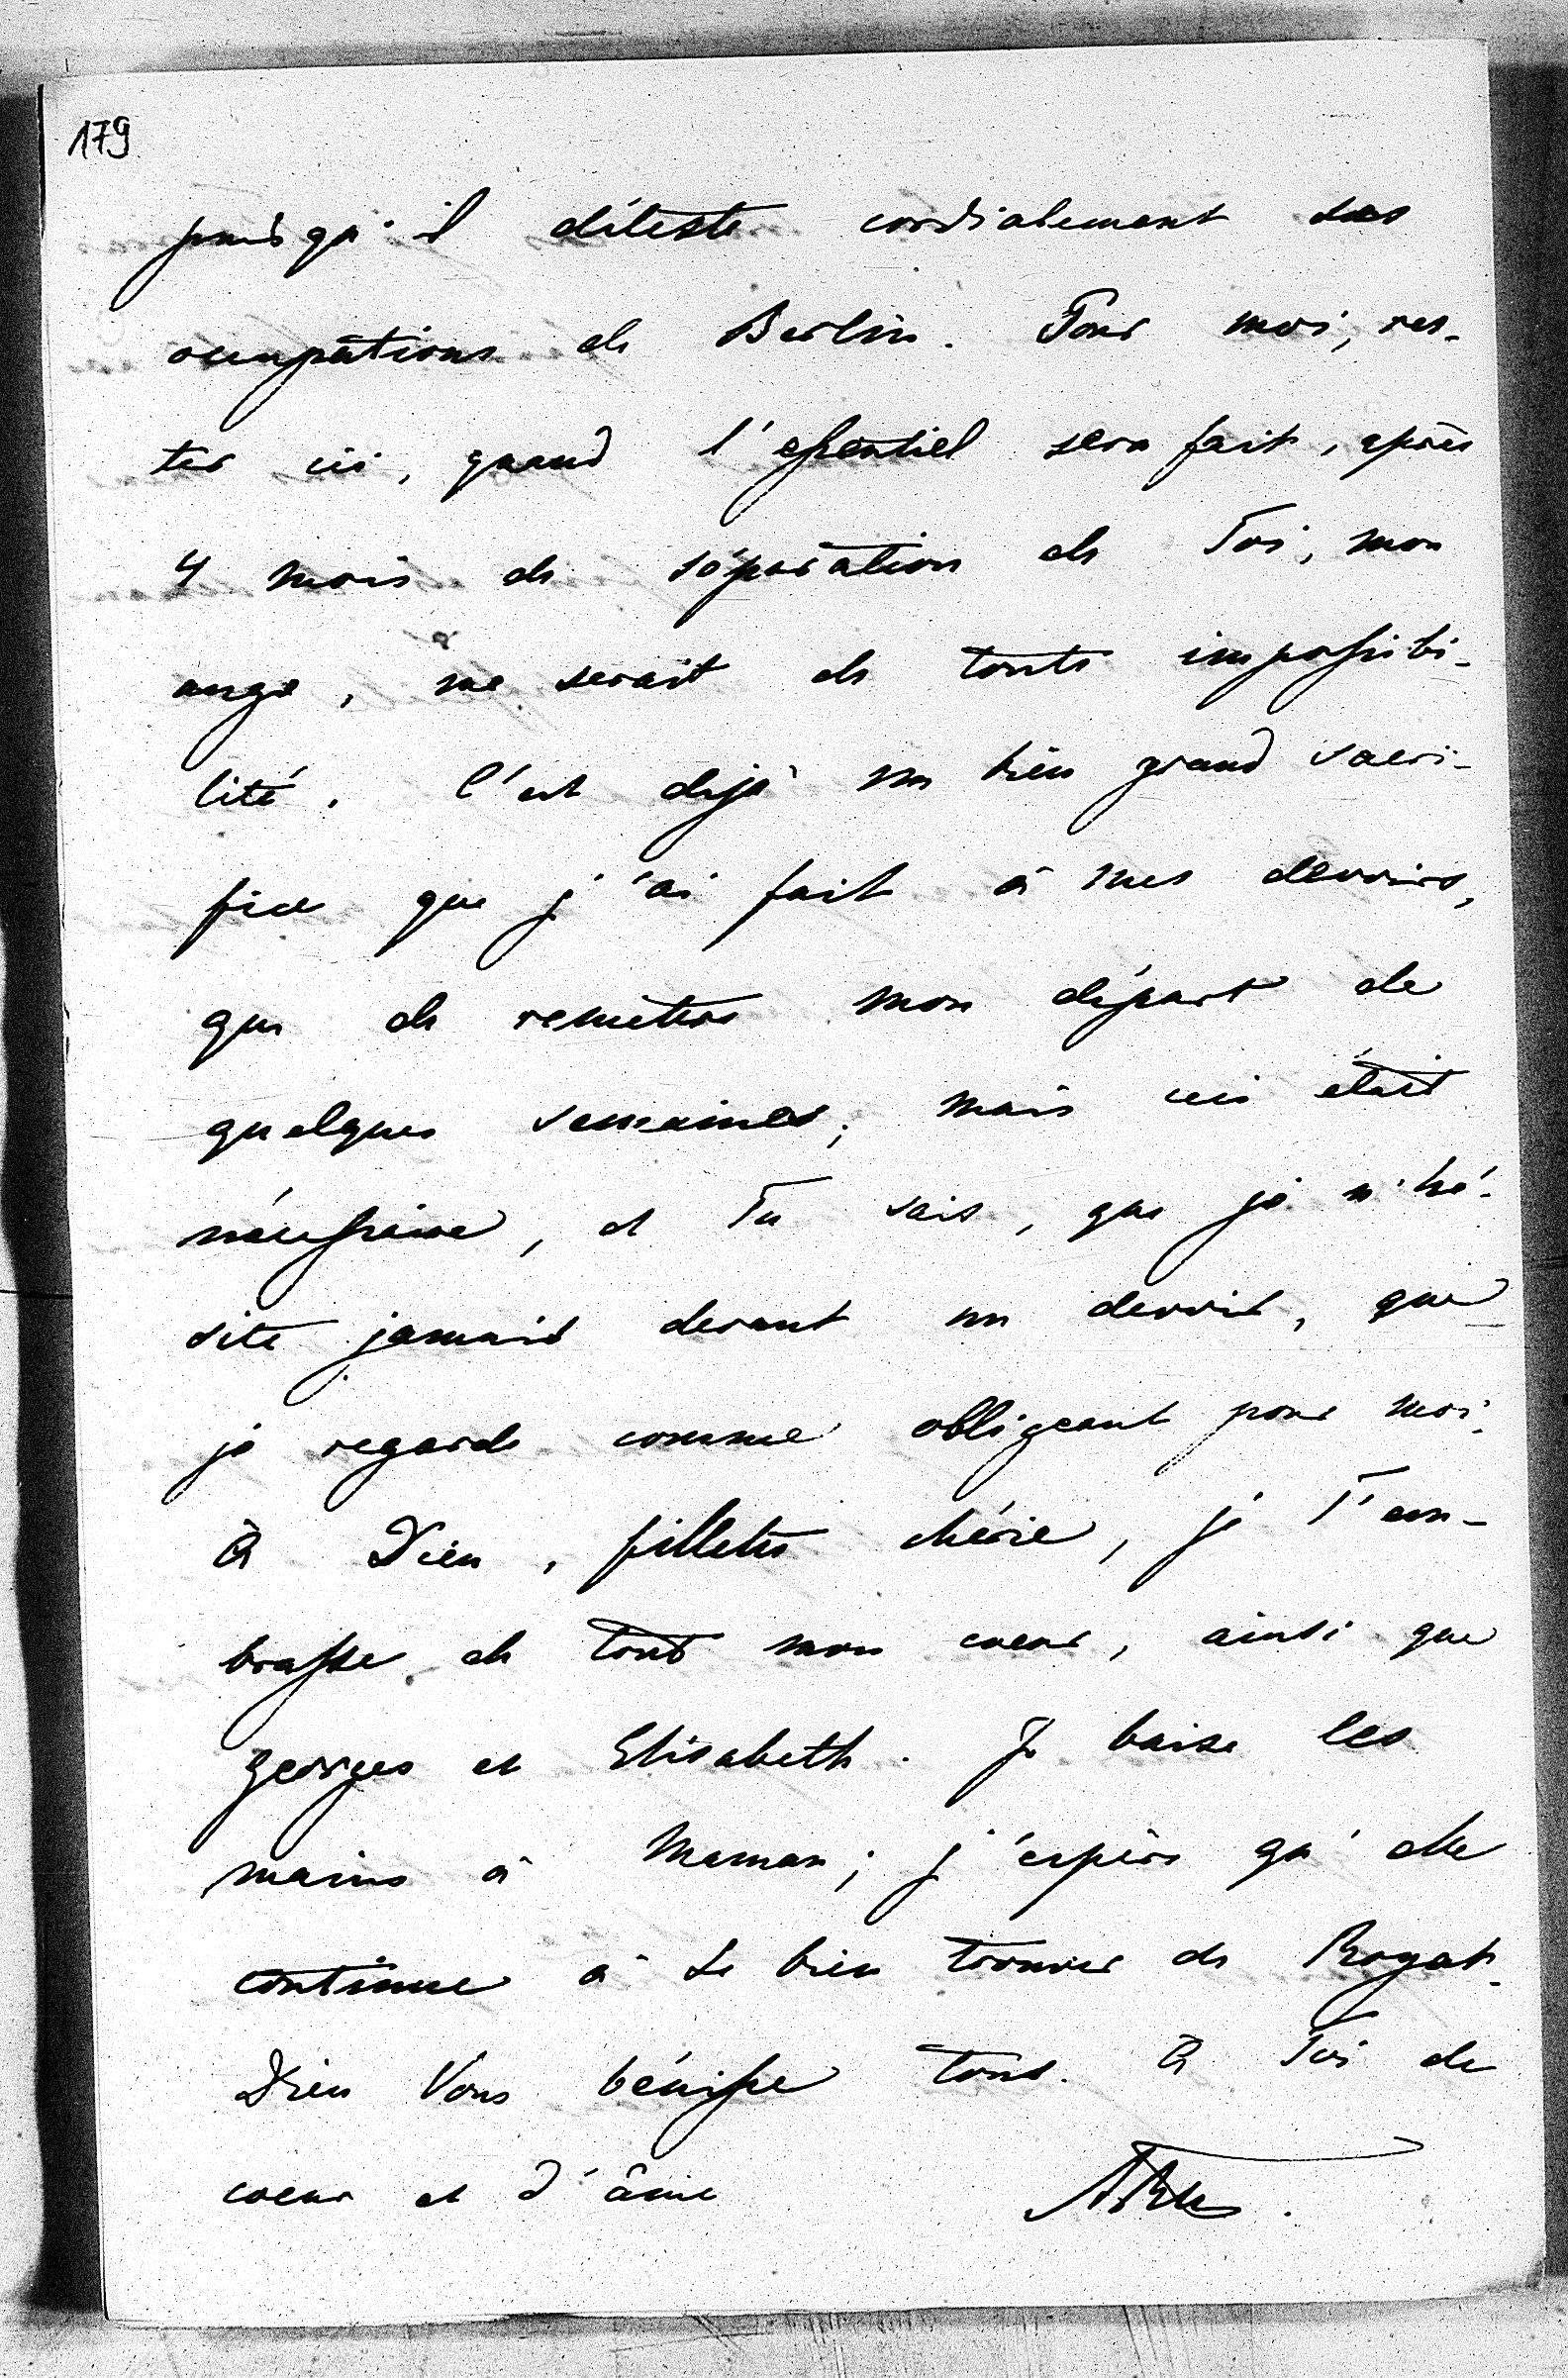 179
puisqu'il déteste cordialement ses
occupations de Berlin. Pour moi, res-
ter ici, quand l'essentiel sera fait, après
4 mois de séparation de Toi, mon
ange, me serait de toute impossibi-
lité. C'est dejà un bien grand sacri-
fice que j'ai fait à mes devoirs,
que de remettre mon départ de
quelques semaines; mais ceci était
nécessaire, et Tu sais, que je n'hé-
site jamais devant un devoir, que
je regarde comme obligeant pour moi.
À Dieu, fillette chérie, je T'em-
brasse de tout mon coeur, ainsi que
Georges et Elisabeth. Je baise les
mains à Maman; j'espère qu'elle
continue à se bien trouver de Royat.
Dieu Vous bénisse tous. À Toi de
coeur et d'âme